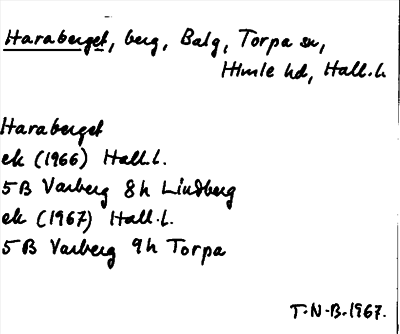 Haraberget, berg, Balg, Torpa sn,
Himle hd, Hall.l.
Haraberget
ek (1966) Hall.l.
5B Varberg 8h Lindberg
ek (1967) Hall.l.
5B Varberg 9h Torpa
T.N.B.1967.